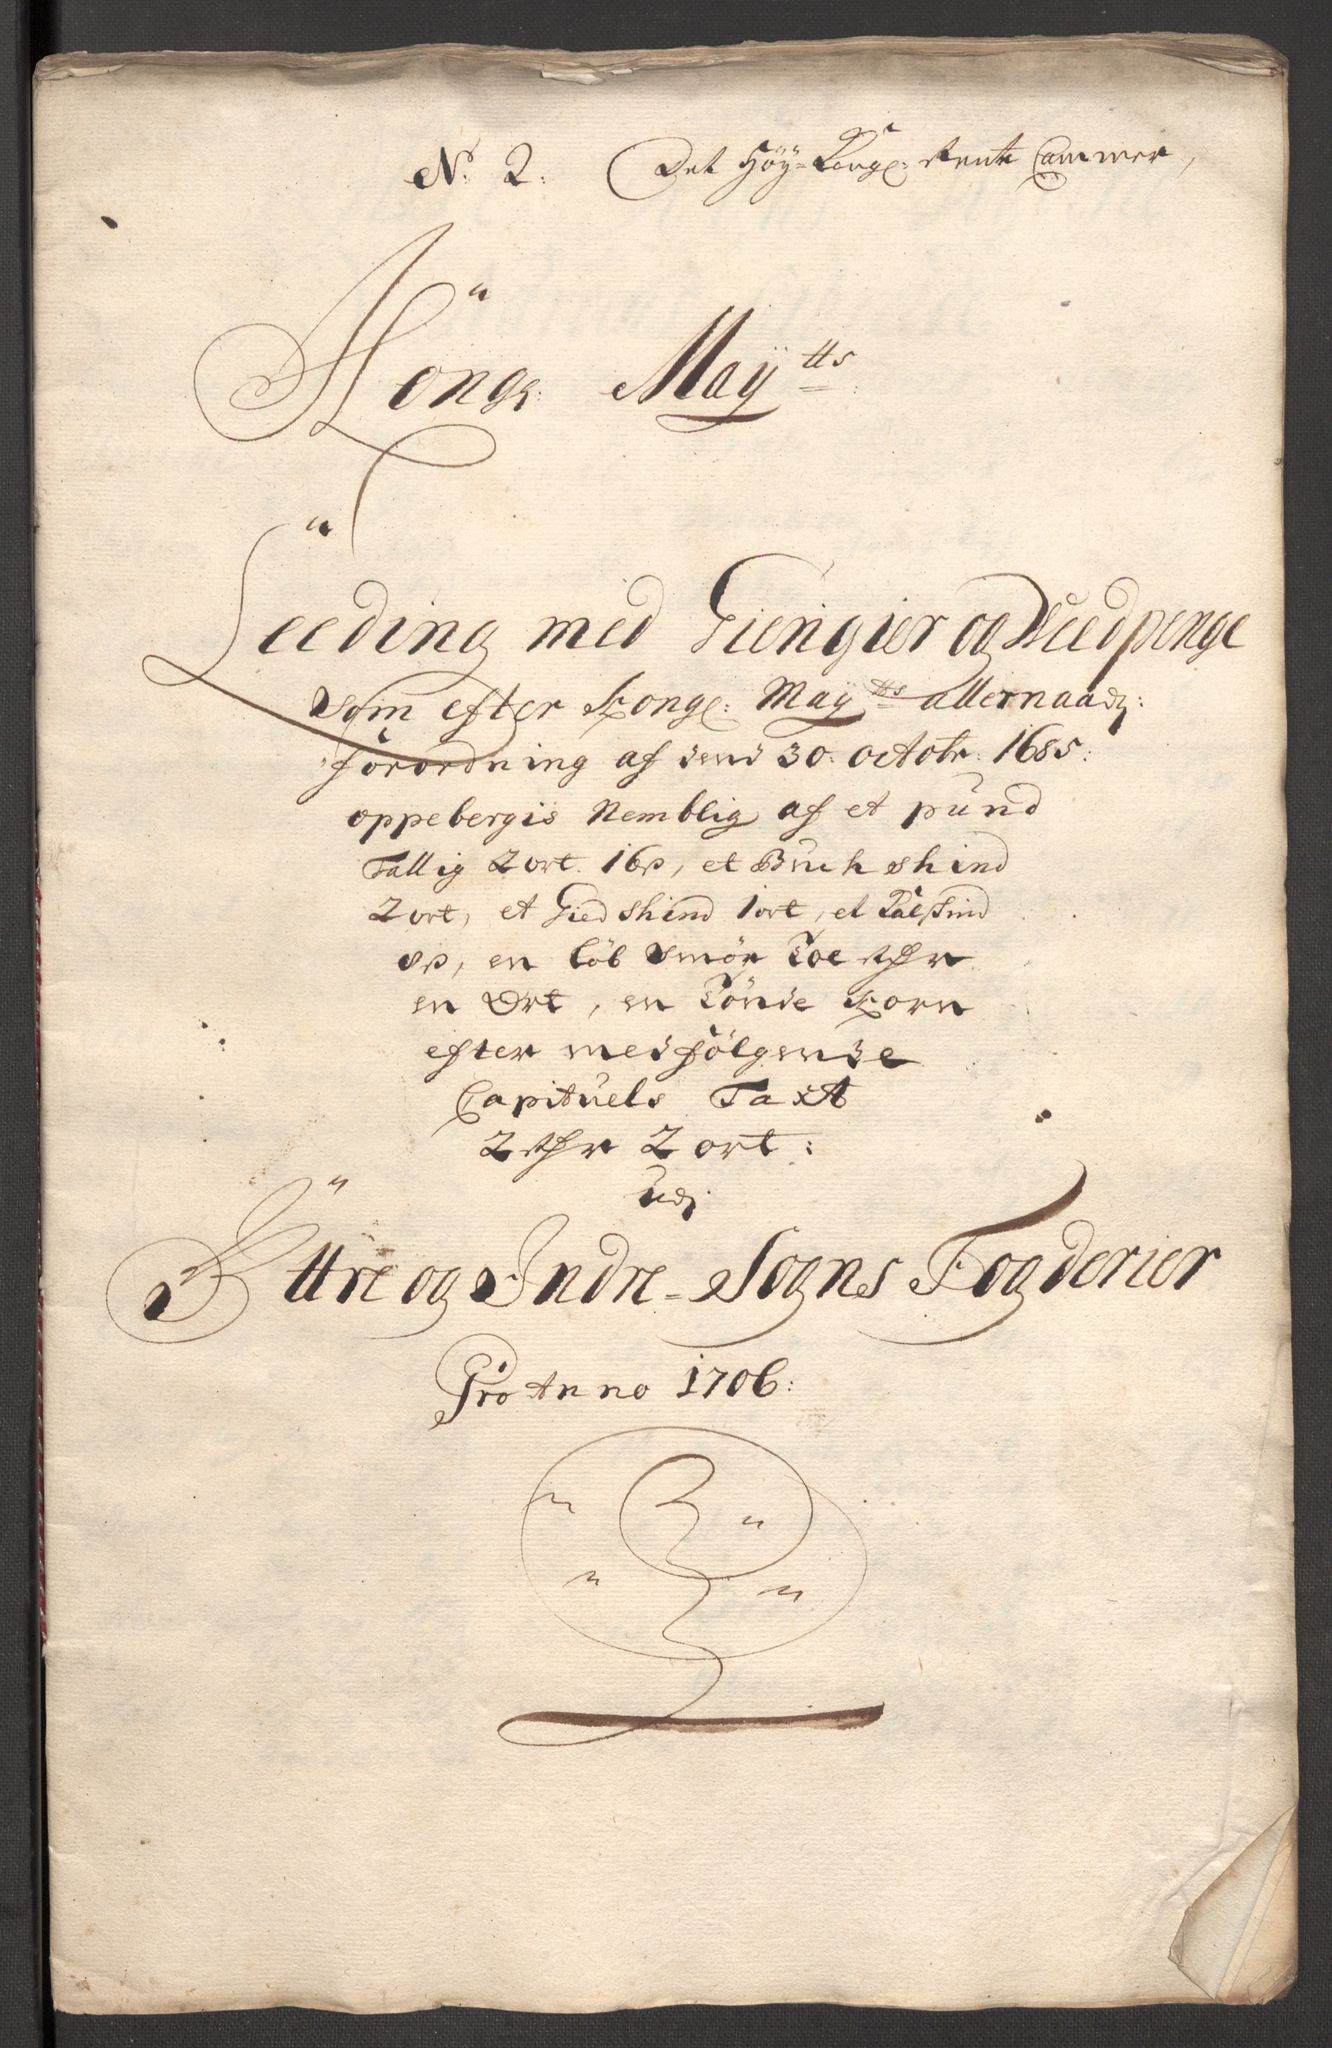 No. 2. Det Höy-Kongl: Rente Cammer,
Kongl: Maÿtts
Leeding med Giengier og Vedpenge
som efter Kongl: Maÿtts allernaadg:
forordning af dend 30. octobr. 1685:
oppebergis Nemblig af et pund
Tallig 2 ort 16 s, et Buch Skind
2 ort, et Giedskind 1 ort, et Kalfskind
8 s, en Löb Smör Toe Rdr
en Ort, en Tönde Korn
efter medfölgende
Capituels Taxt
2 Rdr 2 ort:
udj
Ÿttre og Indre-Sogns Fogderier
Pro Anno 1706: